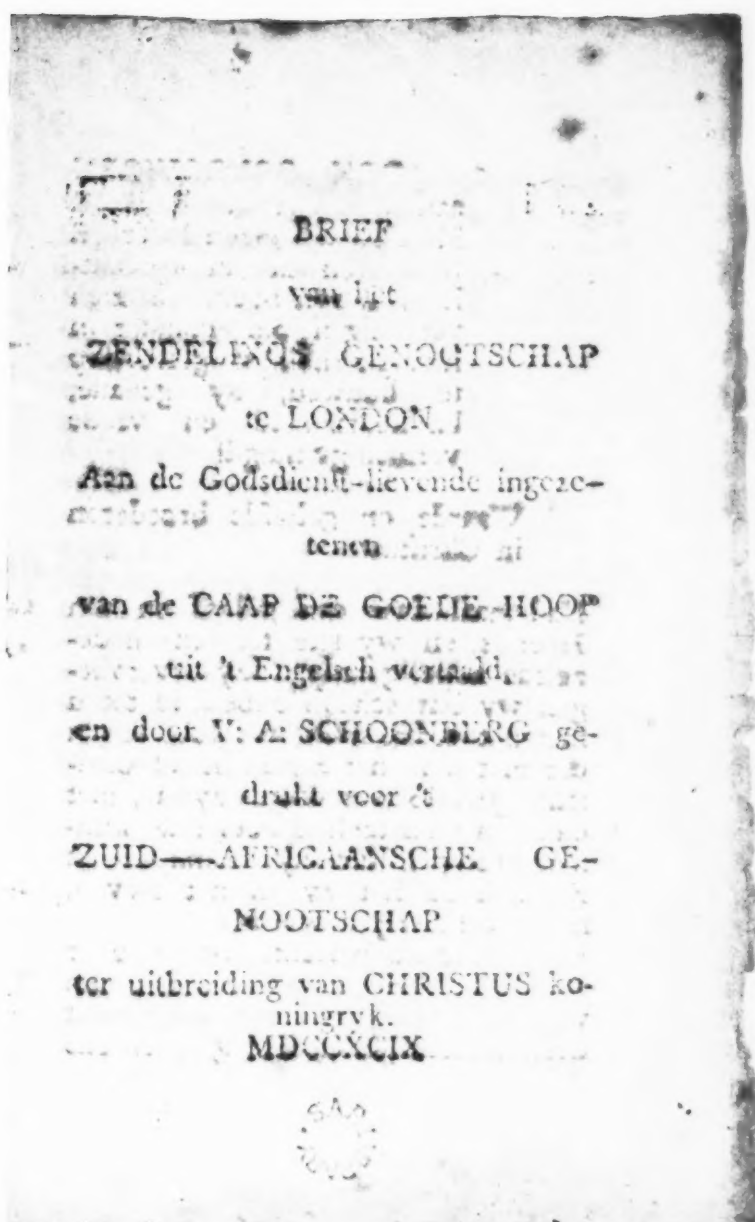 BRIEF
van het
ZENDELINGS GENOOTSCHAP
te LONDON
Aan de Godsdienst-lievende ingeze-
tenen
van de CAAP DE GOEDE HOOP
uit 't Engelsch vertaald,
en door V: A: SCHOONBERG ge-
drukt voor 't
ZUID—AFRICAANSCHE GE-
NOOTSCHAP
ter uitbreiding van CHRISTUS ko-
ningryk.
MDCCXCIX